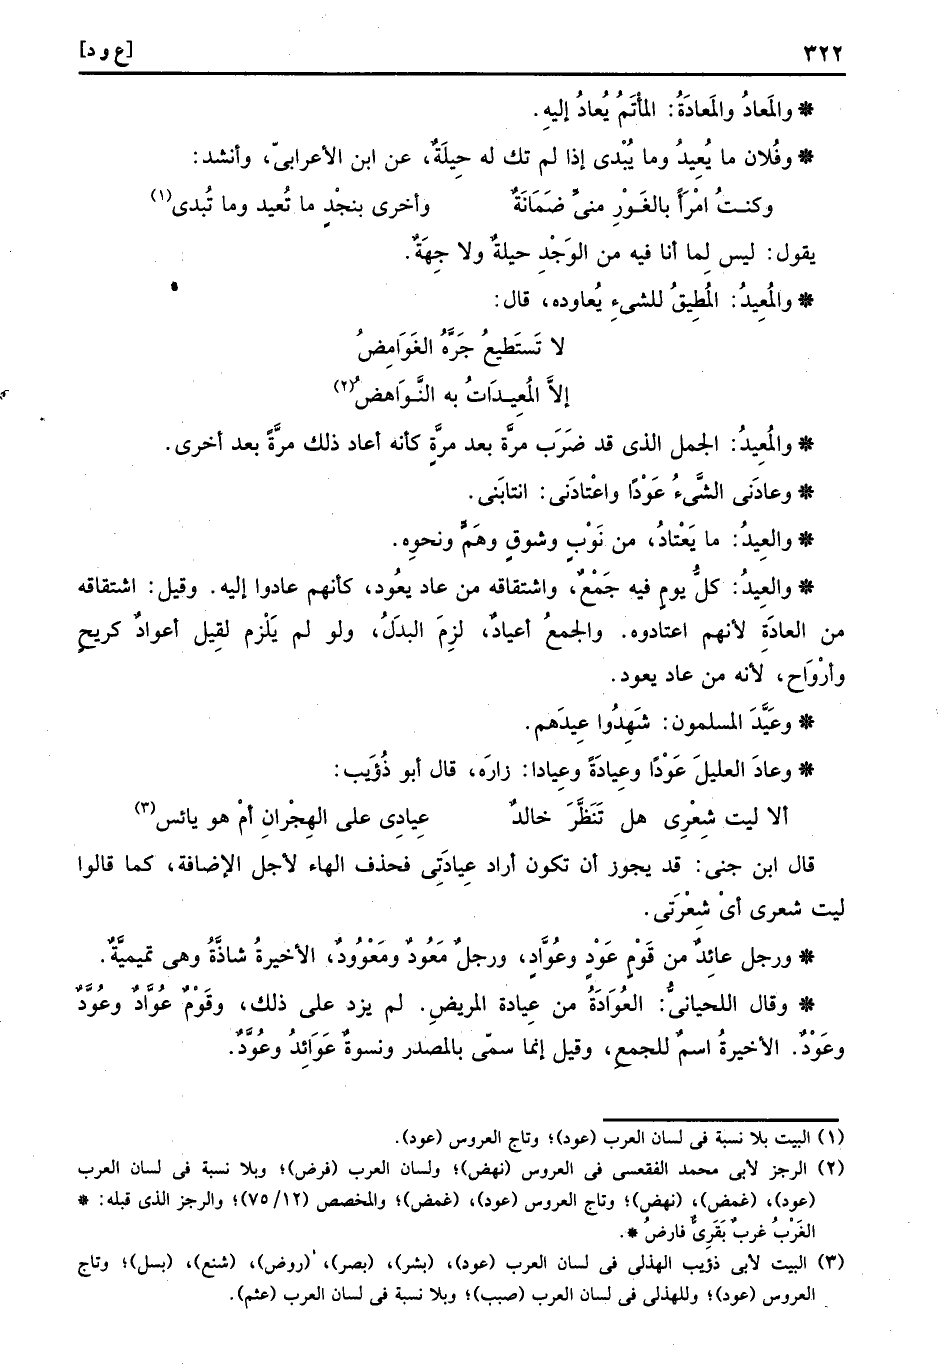 ٣٢٢ [ع و د]
* والمَعادُ والمَعادَةُ: المأْتَمُ يُعادُ إليهِ.
* وفُلان ما يُعِيدُ وما يُبْدى إذا لم تك له حِيلَةٌ، عن ابن الأعرابىّ، وأنشد:
وكنتُ امْرَأً بالغَوْرِ منىِّ ضَمَانَةٌ وأخرى بنجْدٍ ما تُعيد وما تُبدى(١)
يقول: ليس لِما أنا فيه من الوَجْدِ حيلةٌ ولا جِهَةٌ.
* والمُعِيدُ: المُطِيقُ للشىءِ يُعاوده، قال:
لا تَستَطيعُ جَرَّهُ الغَوَامِضُ
إلاَّ المُعِيدَاتُ به النَّوَاهضُ(٢)
* والمُعِيدُ: الجمل الذى قد ضَرَب مرةً بعد مرَّةٍ كأنه أعاد ذلك مرَّةً بعد أخرى.
* وعادَنى الشَّىءُ عَوْدًا واعْتادَنى: انتابَنى.
* والعِيدُ: ما يَعْتادُ، من نَوْبٍ وشوقٍ وهَمٍّ ونحوِه.
* والعِيدُ: كلُّ يومٍ فيه جَمْعٌ، واشتقاقه من عاد يعُود، كأنهم عادوا إليه. وقيل: اشتقاقه
من العادَةِ لأنهم اعتادوه. والجمعُ أعيادٌ، لزِمَ البدَلُ، ولو لم يَلْزم لقِيل أعوادٌ كريحٍ
وأرْوَاحٍ، لأنه من عاد يعود.
* وعَيَّدَ المسلمون: شَهِدُوا عِيدَهم.
* وعادَ العليلَ عَوْدًا وعِيادَةً وعِيادا: زارَه، قال أبو ذُؤَيب:
ألا ليت شِعْرِى هل تَنَظَّرَ خالدٌ عِيادِى على الهِجْرانِ أمْ هو يائس(٣)
قال ابن جنى: قد يجوز أن تكون أراد عِيادَتِى فحذف الهاء لأجل الإضافة، كما قالوا
ليت شعرى أىْ شِعْرَتى.
* ورجل عائِدٌ من قَوْمٍ عَوْدٍ وعُوَّادٍ، ورجلٌ مَعُودٌ ومَعْوُودٌ، الأخيرةُ شاذَّةٌ وهى تميمِيَّةٌ.
* وقال اللحيانىُّ: العُوَادَةُ من عيادة المريضِ. لم يزد على ذلك، وقَوْمٌ عُوَّادٌ وعُوَّدٌ
وعَوْدٌ. الأخيرةُ اسمٌ للجمعِ، وقيل إنما سمّى بالمصدر ونسوةٌ عَوَائِدُ وعُوَّدٌ.
(١) البيت بلا نسبة فى لسان العرب (عود)؛ وتاج العروس (عود).
(٢) الرجز لأبى محمد الفقعسى فى العروس (نهض)؛ ولسان العرب (فرض)؛ وبلا نسبة فى لسان العرب
(عود)، (غمض)، (نهض)؛ وتاج العروس (عود)، (غمض)؛ والمخصص (١٢/ ٧٥)؛ والرجز الذى قبله: *
الغَرْبُ غربٌ بَقَرِىٌّ فارضُ *.
(٣) البيت لأبى ذؤيب الهذلى فى لسان العرب (عود)، (بشر)، (بصر)، (روض)، (شنع)، (بسل)؛ وتاج
العروس (عود)؛ وللهذلى فى لسان العرب (صبب)؛ وبلا نسبة فى لسان العرب (عثم).